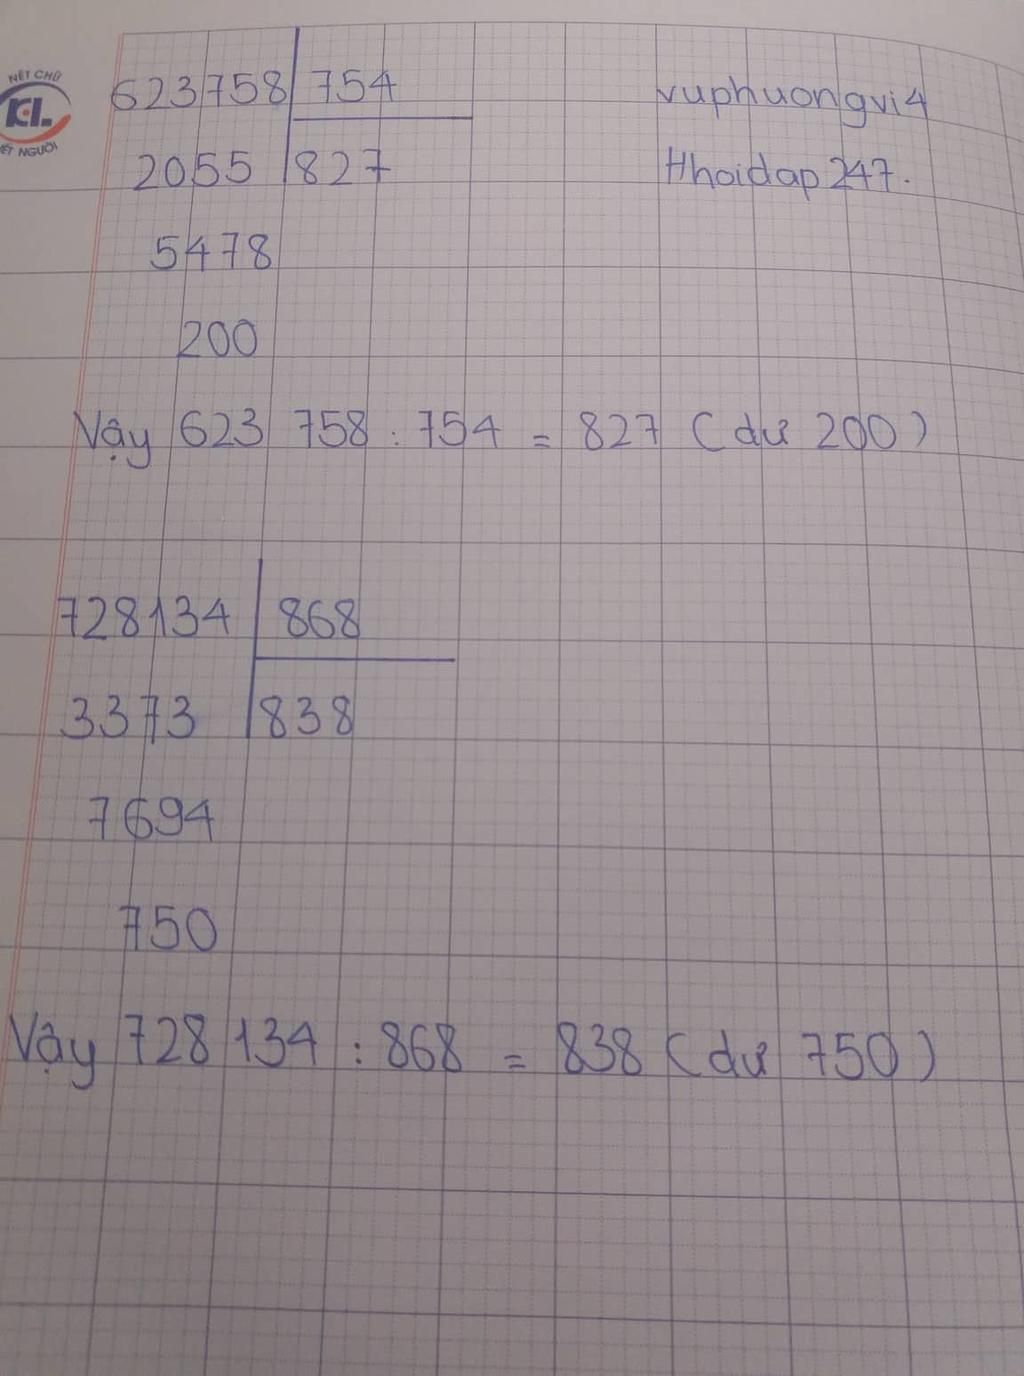 NÉT CHỮ
KL
NẾT NGƯỜI
623758 754
2055 827
5478
200
vuphuongvi4
#hoidap247.
Vậy 623 758 : 754 = 827 (dư 200)
728134 868
3373 838
7694
750
Vậy 728 134 : 868 = 838 (dư 750)